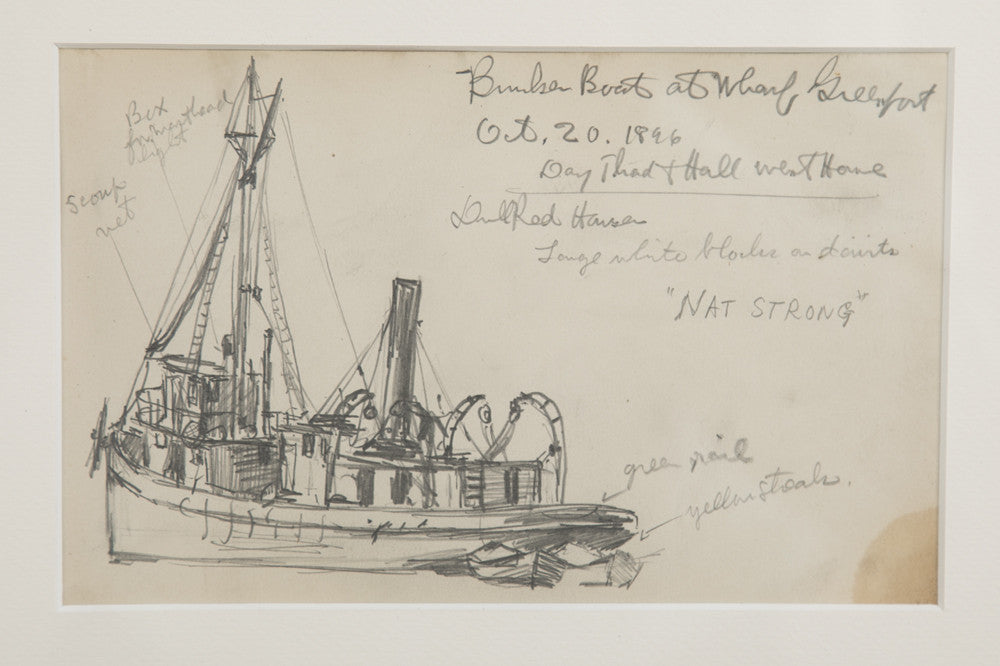 Bunker Boat at Wharf, Greenport
Oct. 20. 1896
Day Thad & Hall went Home
Dull Red Houses
Large white blocks on davits
"NAT STRONG"
Box
for masthead
light
Scoup
net
green rail
yellow streak.